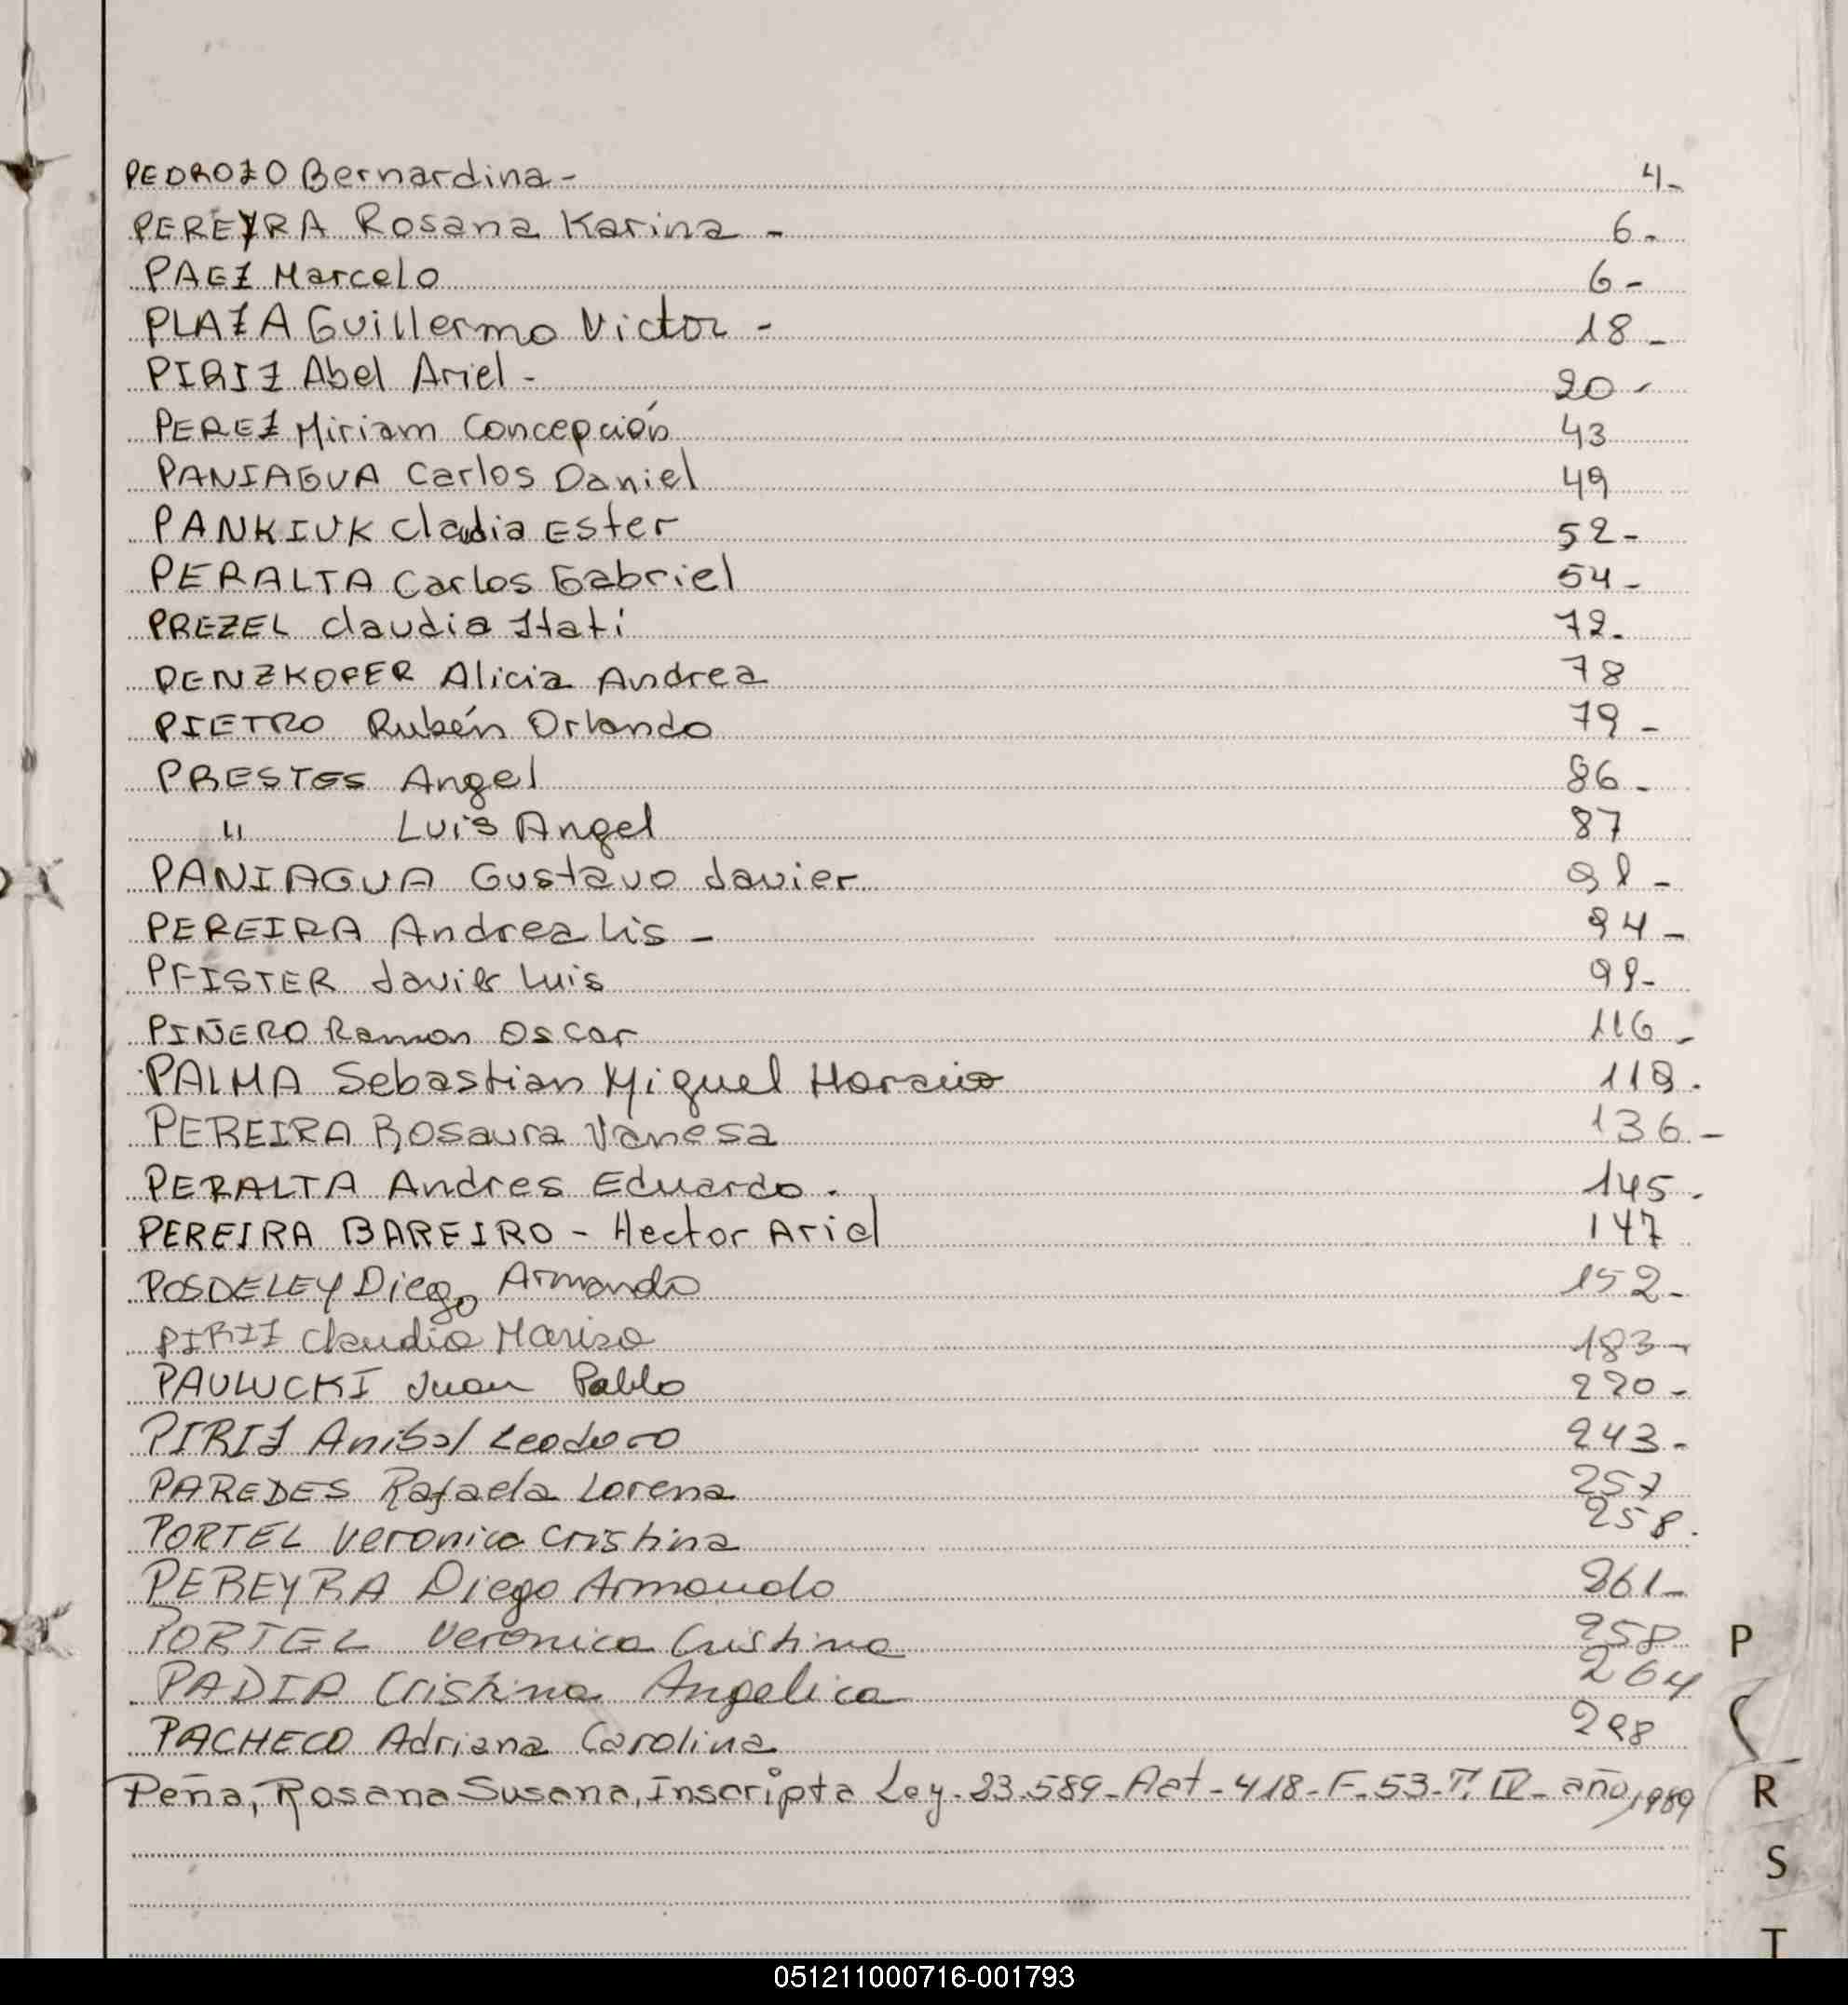 PEDROZO Bernardina - 4-
PEREYRA Rosana Karina - 6-
PAEZ Marcelo 6-
PLAZA Guillermo Victor - 18-
PIRIZ Abel Ariel - 20-
PEREZ Miriam Concepción 43
PANIAGUA Carlos Daniel 49
PANKIUK Claudia Ester 52-
PERALTA Carlos Gabriel 54-
PREZEL Claudia Itati 72.
PENZKOFER Alicia Andrea 78
PIETRO Rubén Orlando 79-
PRESTES Angel 86-
" Luis Angel 87
PANIAGUA Gustavo Javier 91-
PEREIRA Andrea Lis - 94-
PFISTER Javier Luis 99-
PIÑERO Ramon Oscar 116-
PALMA Sebastian Miguel Horacio 118.
PEREIRA Rosaura Vanesa 136-
PERALTA Andres Eduardo. 145.
PEREIRA BAREIRO - Hector Ariel 147
POSDELEY Diego Armando 152-
PIRIZ Claudia Marisa 183-
PAULUCKI Juan Pablo 220-
PIRIZ Anibal Leodoro 243-
PAREDES Rafaela Lorena 257
PORTEL Veronica Cristina 258.
PEREYRA Diego Armando 261-
PORTEL Veronica Cristina 258
P
PADIA Cristina Angelica 264
PACHECO Adriana Carolina 298
Peña, Rosana Susana, Inscripta Ley-23.589-Act-418-F-53-T. IV-año 1989
R
S
T
051211000716-001793